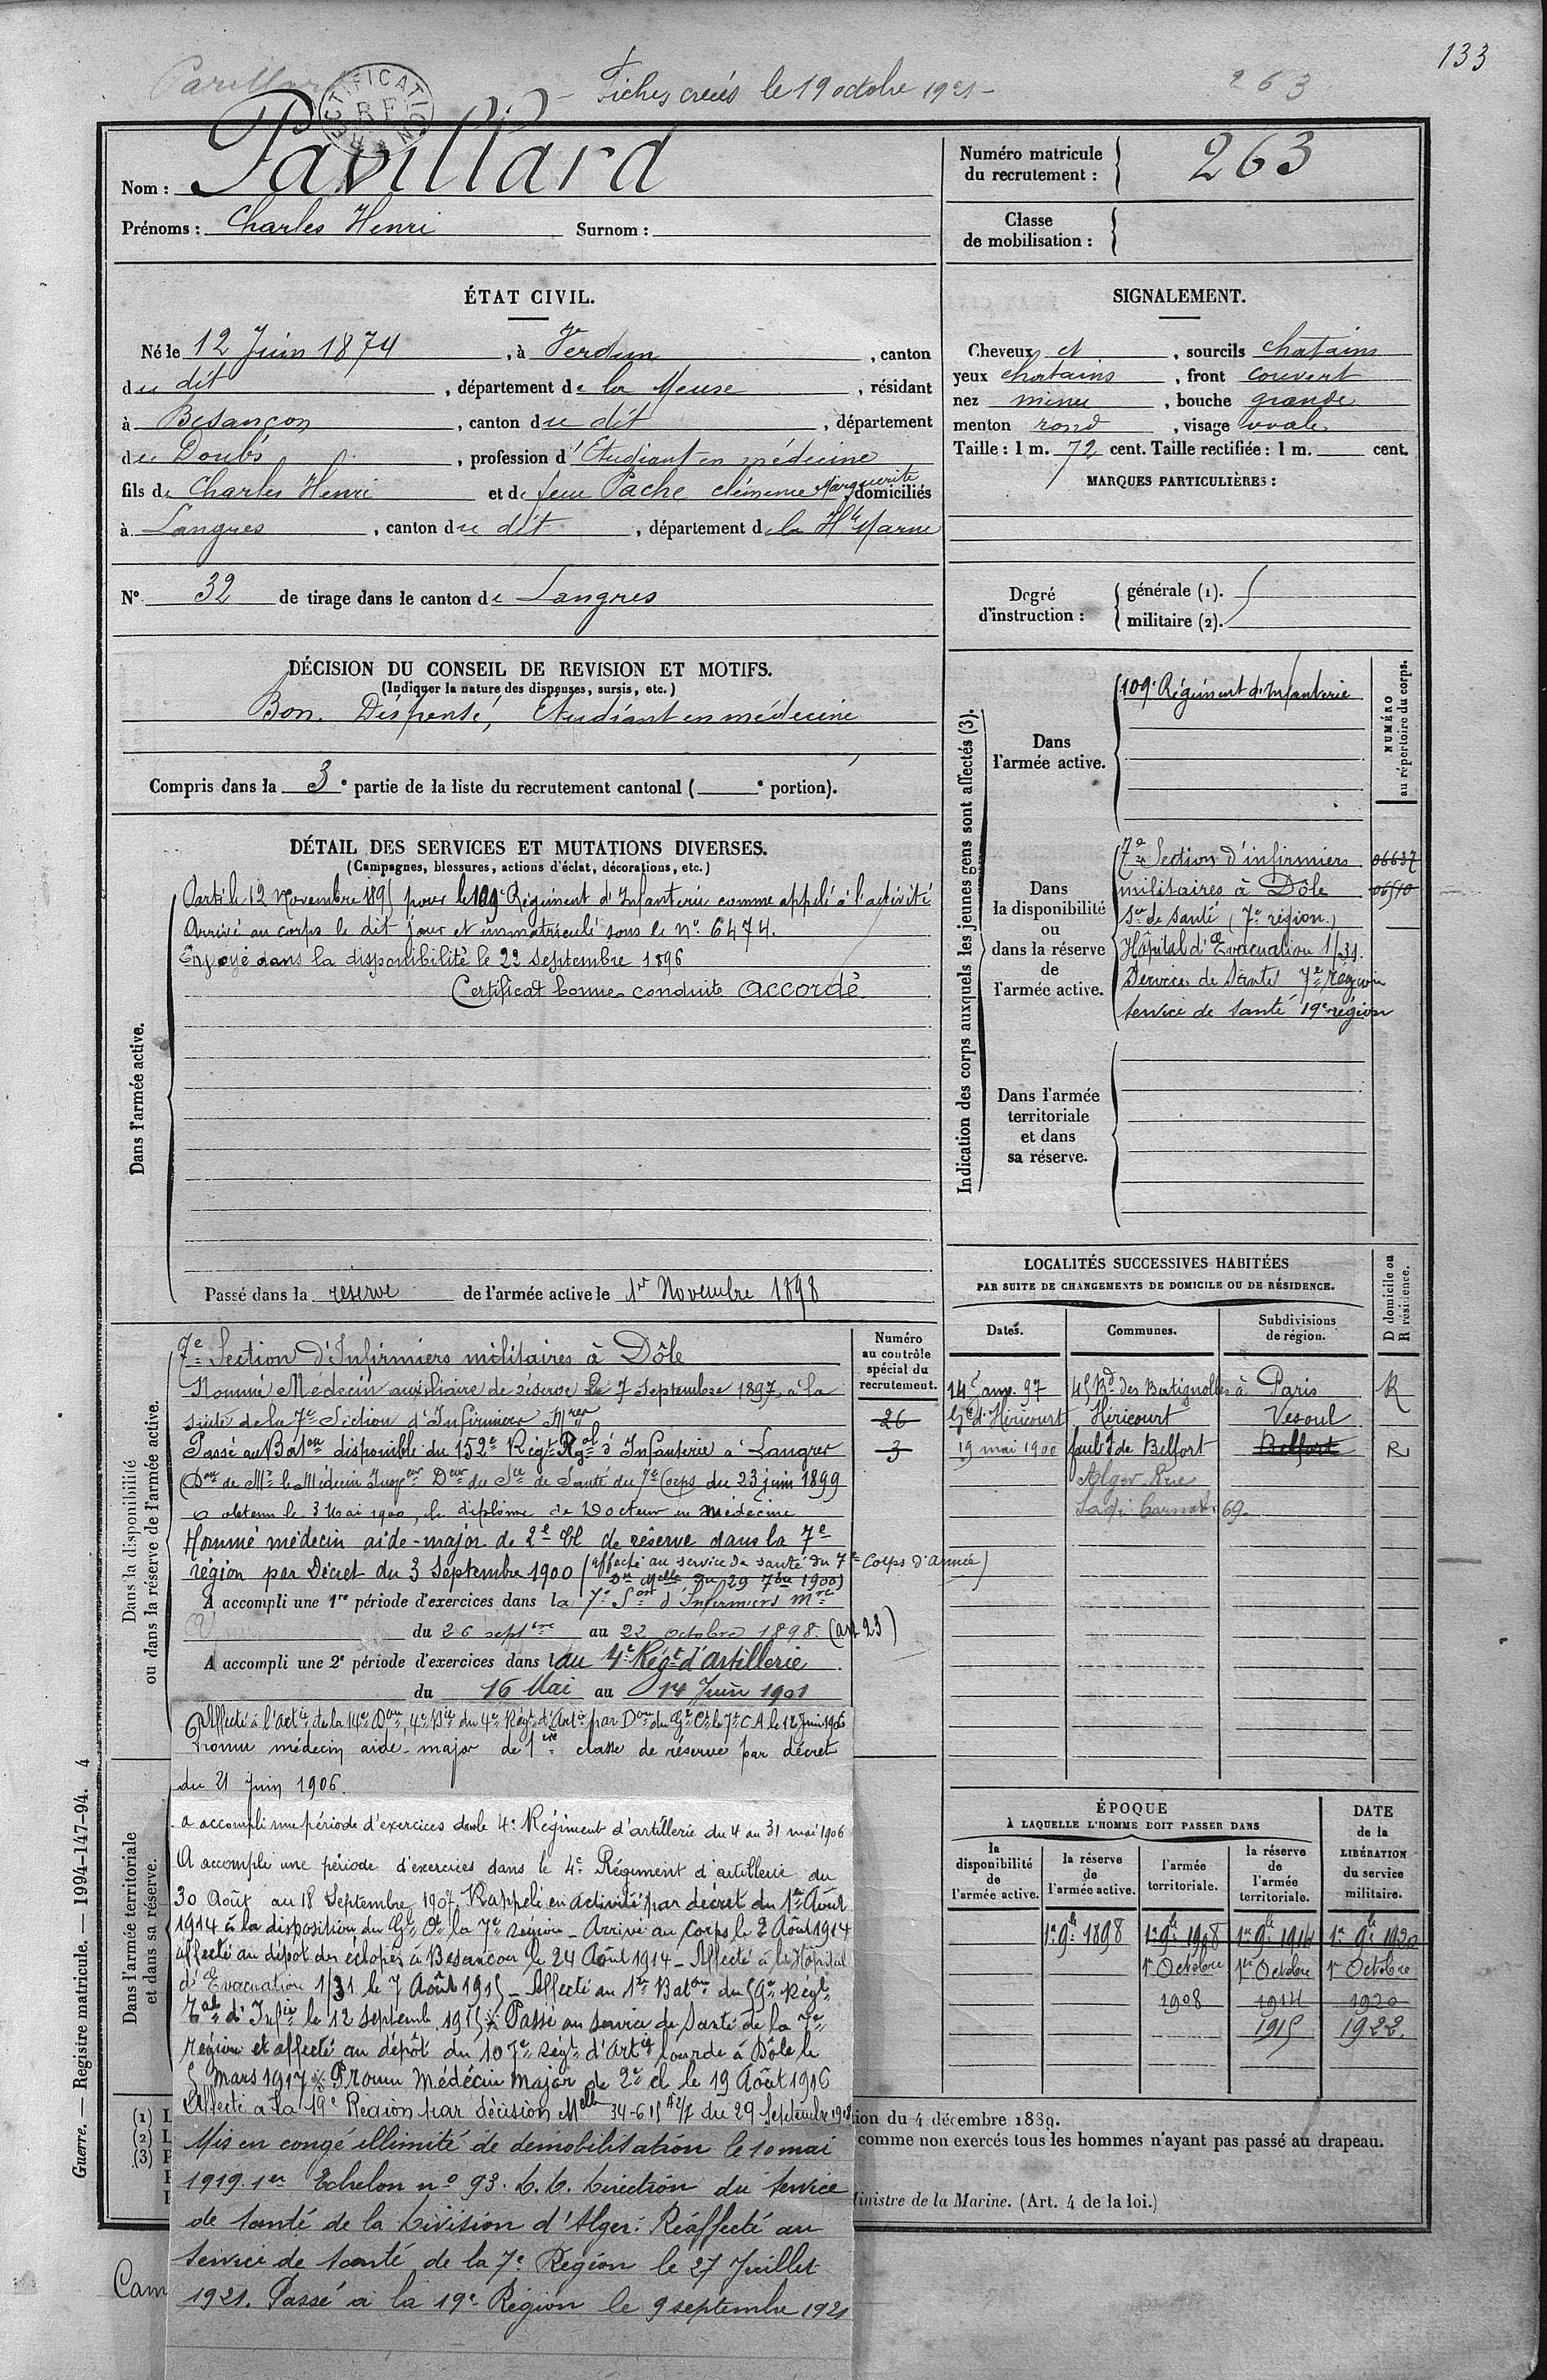 133
Pavillard
Fiches créées le 19 octobre 1921 -
263
RECTIFICATION
R F
Nom : Pavillard
Prénoms : Charles Henri Surnom :
Numéro matricule
du recrutement :
263
Classe
de mobilisation :
ÉTAT CIVIL.
Né le 12 Juin 1874, à Verdun, canton
du dit, département de la Meuse, résidant
à Besançon, canton du dit, département
du Doubs, profession d'Etudiant en médecine
fils de Charles Henri et de feue Pache Clémence Marguerite, domiciliés
à Langres, canton du dit, département d la Hte Marne
N° 32 de tirage dans le canton de Langres
SIGNALEMENT.
Cheveux et, sourcils chatains
yeux chatains, front couvert
nez menu, bouche grande
menton rond, visage ovale
Taille : 1 m. 72 cent. Taille rectifiée : 1 m. cent.
MARQUES PARTICULIÈRES :
Degré
d'instruction :
générale (1).
militaire (2).
DÉCISION DU CONSEIL DE REVISION ET MOTIFS.
(Indiquer la nature des dispenses, sursis, etc.)
Bon. Dispensé, Etudiant en médecine
Compris dans la 3e partie de la liste du recrutement cantonal ( e portion).
DÉTAIL DES SERVICES ET MUTATIONS DIVERSES.
(Campagnes, blessures, actions d'éclat, décorations, etc.)
Dans l'armée active.
Parti le 12 Novembre 1895 pour le 109e Régiment d'Infanterie comme appelé à l'activité
Arrivé au corps le dit jour et immatriculé sous le n° 6474.
Envoyé dans la disponibilité le 22 Septembre 1896
Certificat bonne conduite accordé.
Passé dans la réserve de l'armée active le 1er Novembre 1898
Indication des corps auxquels les jeunes gens sont affectés (3).
NUMÉRO
au répertoire du corps.
Dans
l'armée active.
109e Régiment d'Infanterie
Dans
la disponibilité
ou
dans la réserve
de
l'armée active.
7e Section d'infirmiers 06637
militaires à Dôle 06510
Sce de Santé (7e région)
Hôpital d'Evacuation 1/31.
Service de Santé 7e région
Service de Santé 19e région
Dans l'armée
territoriale
et dans
sa réserve.
LOCALITÉS SUCCESSIVES HABITÉES
PAR SUITE DE CHANGEMENTS DE DOMICILE OU DE RÉSIDENCE.
D domicile ou
R résidence.
Dates. Communes. Subdivisions
de région.
97 45 Bd des Batignolles à Paris R
Héricourt Vesoul
19 mai 1900 faubg de Belfort Belfort R
Alger Rue
Sadi Carnot 69.
Dans la disponibilité
ou dans la réserve de l'armée active.
Numéro
au contrôle
spécial du
recrutement.
26
3
7e Section d'Infirmiers militaires à Dôle
Nommé Médecin auxiliaire de réserve le 7 Septembre 1897, à la
suite de la 7e Section d'Infirmiers Mres
Passé au Baton disponible du 152e Régt Rgal d'Infanterie à Langres
(Don de Mr le Médecin Inspeur Deur du Sce de Santé du 7e Corps du 23 juin 1899
a obtenu le 3 Mai 1900, le diplôme de Docteur en Médecine
Nommé médecin aide-major de 2e Cl de réserve dans la 7e
région par Décret du 3 Septembre 1900 (affecté au service de santé du 7e Corps d'armée)
Don Melle du 29 7bre 1900)
A accompli une 1re période d'exercices dans la 7e Son d'Infirmiers Mres
du 26 septbre au 22 octobre 1898. (art 23)
A accompli une 2e période d'exercices dans l au 4e Régt d'artillerie
du 16 Mai au 14 Juin 1901
Affecté à l'Artie de la 14e Don, 4e Bie du 4e Régt d'Artie par Don du Gl Ct le 7e CA le 12 Juin 1906
Promu médecin aide-major de 1ère classe de réserve par décret
du 21 Juin 1906.
Dans l'armée territoriale
et dans sa réserve.
a accompli une période d'exercices dans le 4e Régiment d'artillerie du 4 au 31 mai 1906
A accompli une période d'exercices dans le 4e Régiment d'artillerie du
30 Août au 18 Septembre 1907. Rappelé en activité par décret du 1er Août
1914 à la disposition du Gl Ct la 7e région - Arrivé au Corps le 2 Août 1914
affecté au dépôt des éclopés à Besançon le 24 Août 1914 - Affecté à l'Hôpital
d'Evacuation 1/31 le 7 Août 1915 - Affecté au 1er Baton du 59e Régt
Tal d'Infie le 12 Septemb. 1915 Passé au Service de Santé de la 7e
région et affecté au dépôt du 107e Régt d'Artie lourde à Dôle le
5 mars 1917 Promu Médecin Major de 2e cl le 19 Août 1916
Affecté à la 19e Région par décision Melle 34-615 du 29 Septembre 1918
Mis en congé illimité de démobilisation le 10 mai
1919. 1er Echelon n° 93. D.D. Direction du Service
de Santé de la Division d'Alger. Réaffecté au
Service de Santé de la 7e Région le 27 Juillet
1921. Passé à la 19e Région le 9 septembre 1921
ÉPOQUE
À LAQUELLE L'HOMME DOIT PASSER DANS
DATE
de la
LIBÉRATION
du service
militaire.
la
disponibilité
de
l'armée active.
la réserve
de
l'armée active.
l'armée
territoriale.
la réserve
de
l'armée
territoriale.
1er 9bre 1898 1er 9bre 1908 1er 9bre 1914 1er 9bre 1920
1er Octobre 1er Octobre 1er Octobre
1908 1914 1920
1915 1922.
(1) L
(2) L
(3) P
tion du 4 décembre 1889.
comme non exercés tous les hommes n'ayant pas passé au drapeau.
Ministre de la Marine. (Art. 4 de la loi.)
Cam
Guerre. — Registre matricule. — 1994-147-94. 4